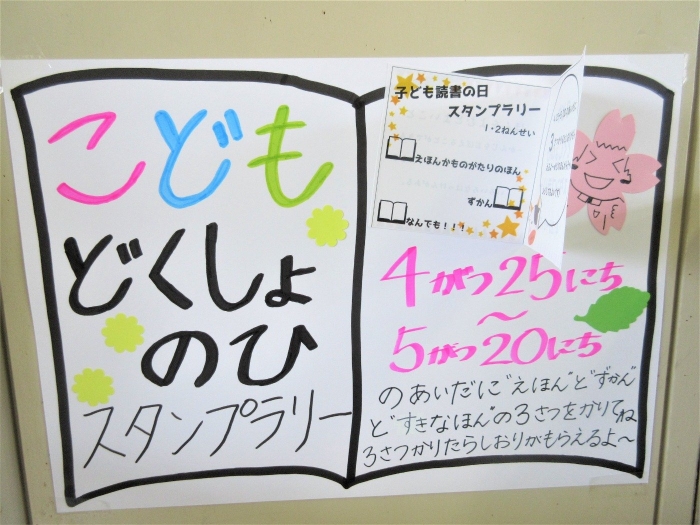 こども
どくしょ
のひ
スタンプラリー
子ども読書の日
スタンプラリー
1・2ねんせい
えほんかものがたりのほん
ずかん
なんでも!!!
4がつ25にち
～
5がつ20にち
のあいだに"えほん"と"ずかん"
と"すきなほん"の3さつをかりてね
3さつかりたらしおりがもらえるよ～